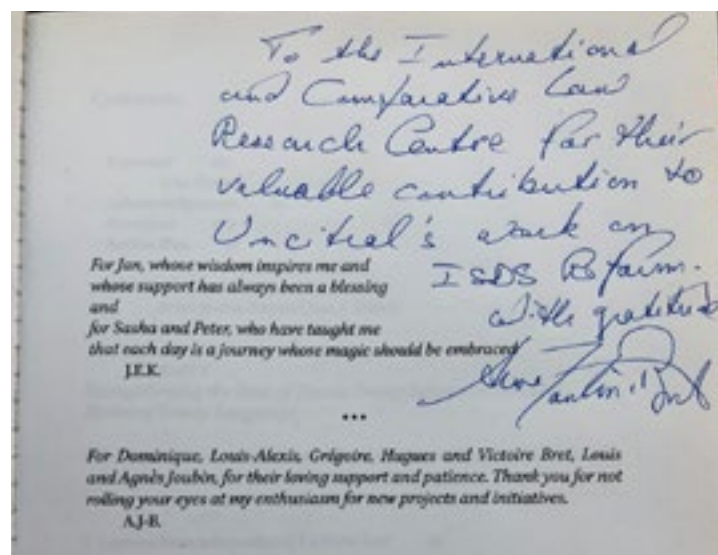 To the International
and Comparative Law
Research Centre for their
valuable contribution to
Uncitral's work on
ISDS Reform.
With gratitude
For Jan, whose wisdom inspires me and
whose support has always been a blessing
and
for Sasha and Peter, who have taught me
that each day is a journey whose magic should be embraced
J.E.K.
•••
For Dominique, Louis-Alexis, Grégoire, Hugues and Victoire Bret, Louis
and Agnès Joubin, for their loving support and patience. Thank you for not
rolling your eyes at my enthusiasm for new projects and initiatives.
A.J-B.